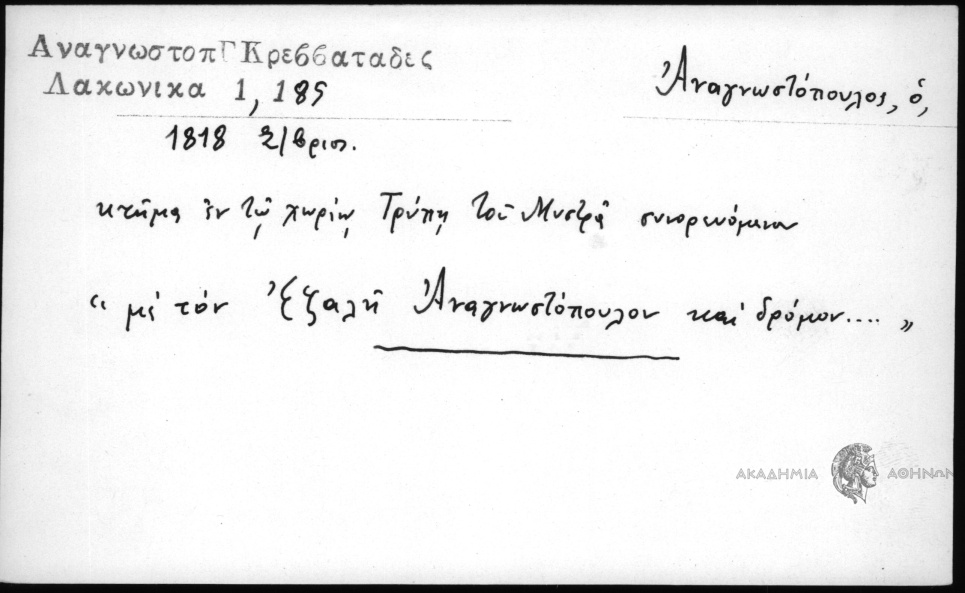 ΑναγνωστοπΓΚρεββαταδες
Λακωνικα 1, 185
Ἀναγνωστόπουλος, ὁ,
1818 2/βρισ.
κτῆμα ἐν τῷ χωρίῳ Τρύπῃ τοῦ Μυστρᾶ συνορευόμενον
“ μὲ τὸν Ἐξζαλῆ Ἀναγνωστόπουλον καὶ δρόμον.... „
ΑΚΑΔΗΜΙΑ ΑΘΗΝΩΝ